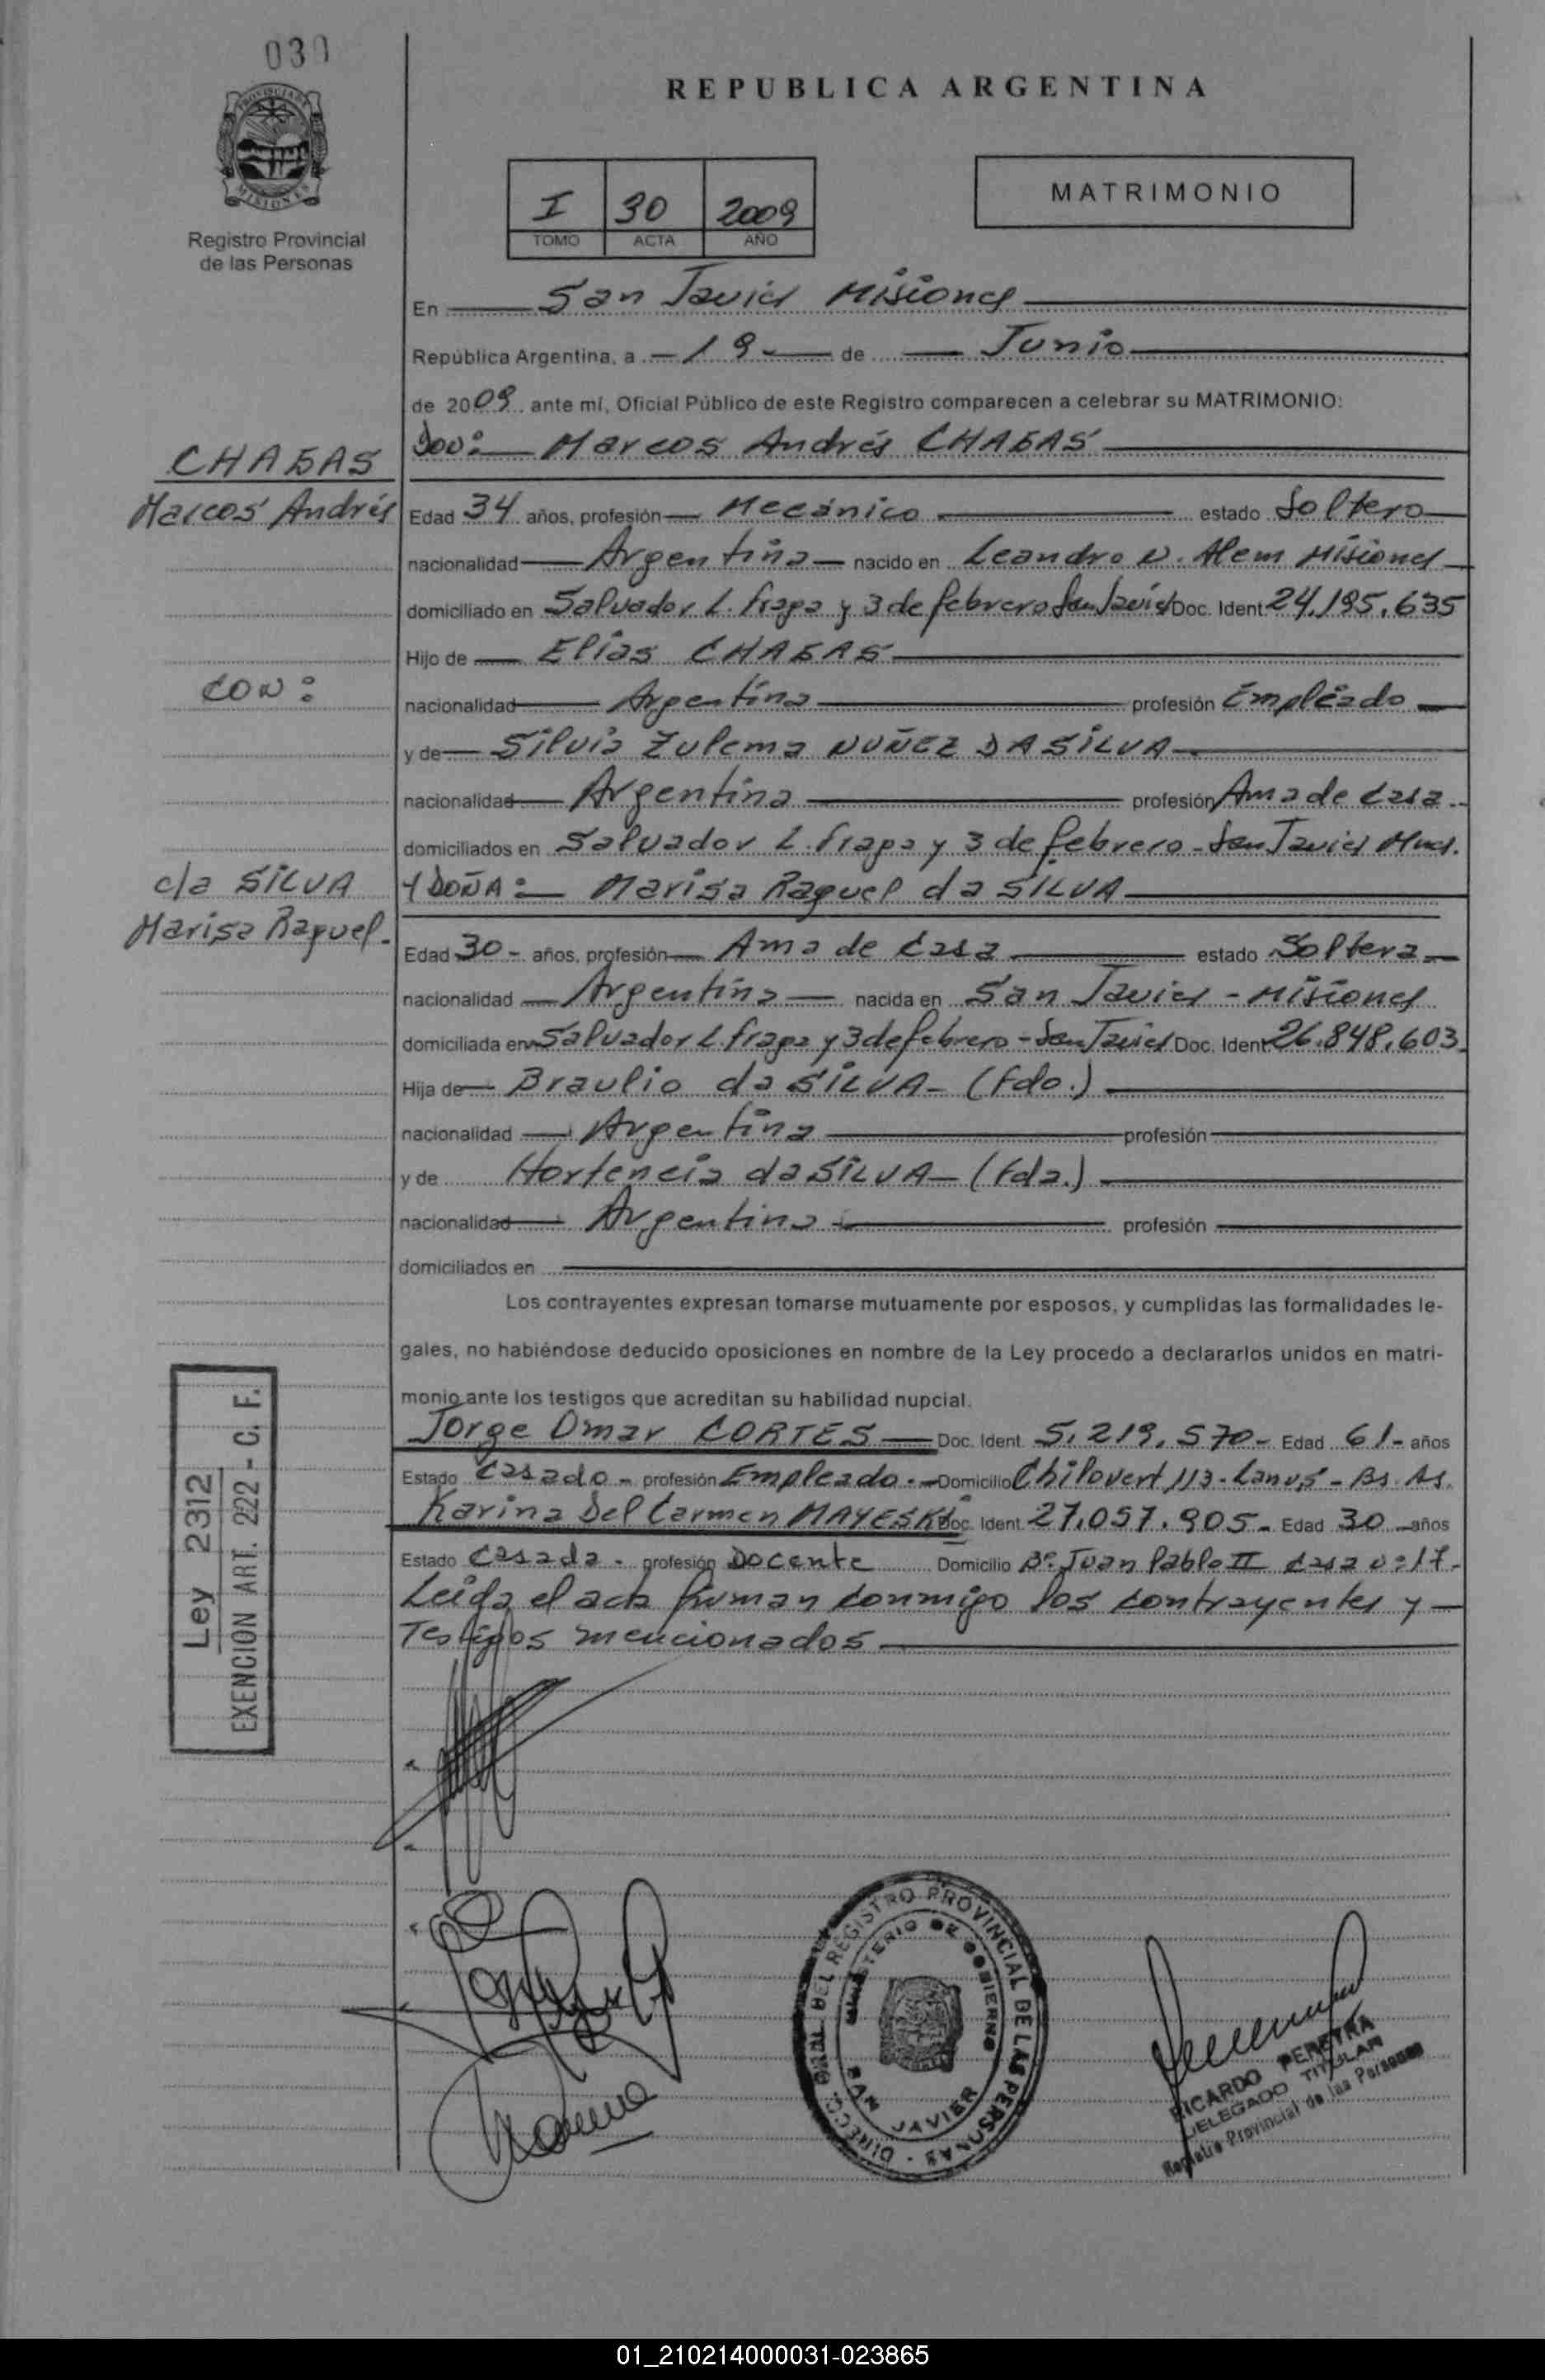 030
REPUBLICA ARGENTINA
PROVINCIA DE MISIONES
Registro Provincial
de las Personas
I 30 2009
TOMO ACTA AÑO
MATRIMONIO
En San Javier Misiones
República Argentina, a 19 de Junio
de 2009 ante mí, Oficial Público de este Registro comparecen a celebrar su MATRIMONIO:
CHAGAS
Marcos Andrés
DON: Marcos Andrés CHAGAS
Edad 34 años, profesión Mecánico estado Soltero
nacionalidad Argentina nacido en Leandro N. Alem Misiones
domiciliado en Salvador L. Fraga y 3 de febrero San Javier Doc. Ident 24.195.635
Hijo de Elías CHAGAS
CON:
nacionalidad Argentina profesión Empleado
y de Silvia Zulema NUÑEZ DA SILVA
nacionalidad Argentina profesión Ama de casa
domiciliados en Salvador L. Fraga y 3 de febrero - San Javier Mnes.
da SILVA
Marisa Raquel.
Y DOÑA: Marisa Raquel da SILVA
Edad 30 - años, profesión Ama de casa estado Soltera
nacionalidad Argentina nacida en San Javier - Misiones
domiciliada en Salvador L. Fraga y 3 de febrero - San Javier Doc. Ident 26.848.603
Hija de Braulio da SILVA - (Fdo.)
nacionalidad Argentina profesión
y de Hortencia da SILVA - (Fda.)
nacionalidad Argentina profesión
domiciliados en
Los contrayentes expresan tomarse mutuamente por esposos, y cumplidas las formalidades le-
gales, no habiéndose deducido oposiciones en nombre de la Ley procedo a declararlos unidos en matri-
monio ante los testigos que acreditan su habilidad nupcial.
Jorge Omar CORTES Doc. Ident 5.219.570 - Edad 61 - años
Estado Casado - profesión Empleado. - Domicilio Chilavert 113 - Lanus - Bs. As.
Karina Del Carmen MAYESKI Doc. Ident 27.057.905 - Edad 30 años
Estado Casada - profesión Docente Domicilio Bº. Juan Pablo II casa nº 17 -
Leida el acta firman conmigo los contrayentes y
Testigos mencionados
Ley 2312
EXENCION ART. 222 - C. F.
DIRECC. GRAL. DEL REGISTRO PROVINCIAL DE LAS PERSONAS
MINISTERIO DE GOBIERNO
SAN JAVIER
RICARDO PEREYRA
DELEGADO TITULAR
Registro Provincial de las Personas
01_210214000031-023865